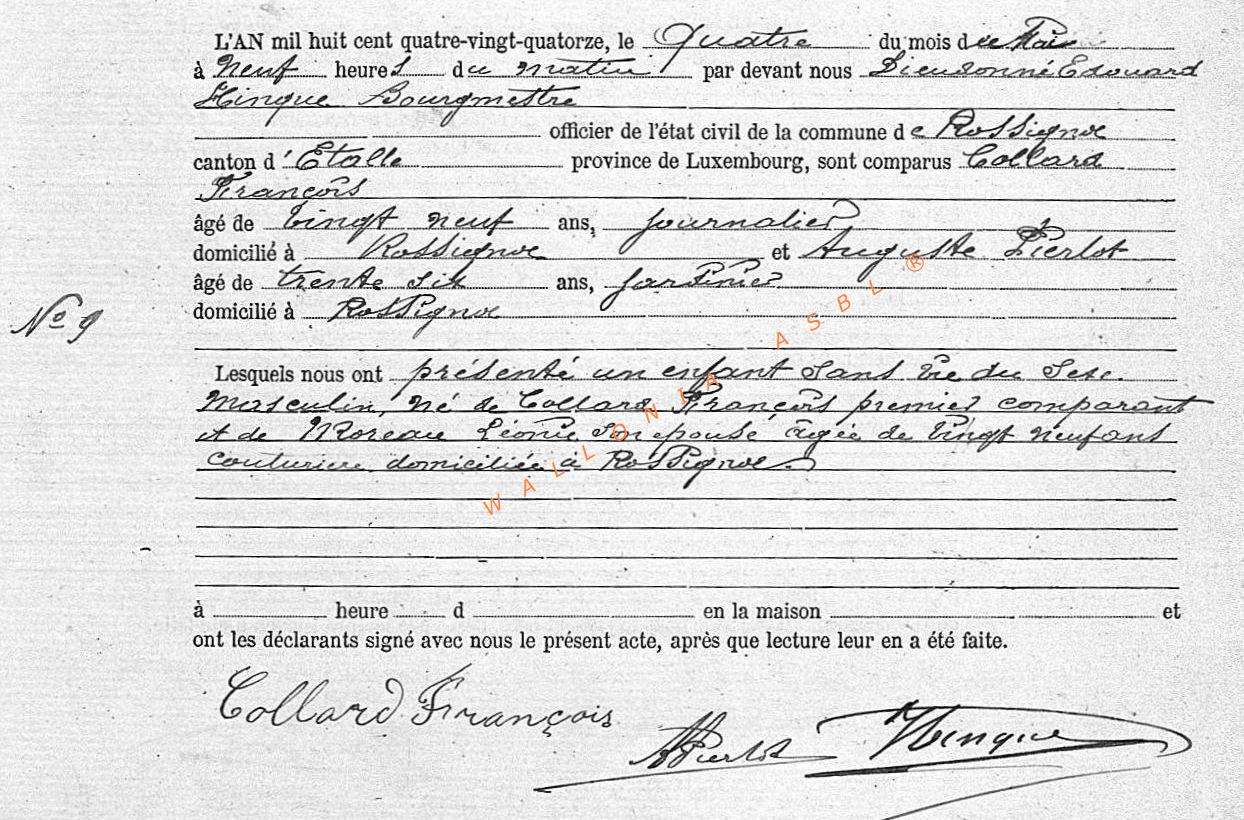 L'AN mil huit cent quatre-vingt-quatorze, le Quatre du mois de Mai
à neuf heures du matin par devant nous Dieudonné Edouard
Hinque Bourgmestre
officier de l'état civil de la commune de Rossignol
canton d'Etalle province de Luxembourg, sont comparus Collard
François
âgé de vingt neuf ans, journalier
domicilié à Rossignol et Auguste Pierlot
âgé de trente six ans, jardinier
domicilié à Rossignol
No 9
Lesquels nous ont présenté un enfant sans vie du sexe
masculin, né de Collard François premier comparant
et de Moreau Léonie son épouse âgée de vingt neuf ans
couturière domiciliée à Rossignol.
à heure d en la maison et
ont les déclarants signé avec nous le présent acte, après que lecture leur en a été faite.
Collard François
A Pierlot Hinque
WALLONIA ASBL ®